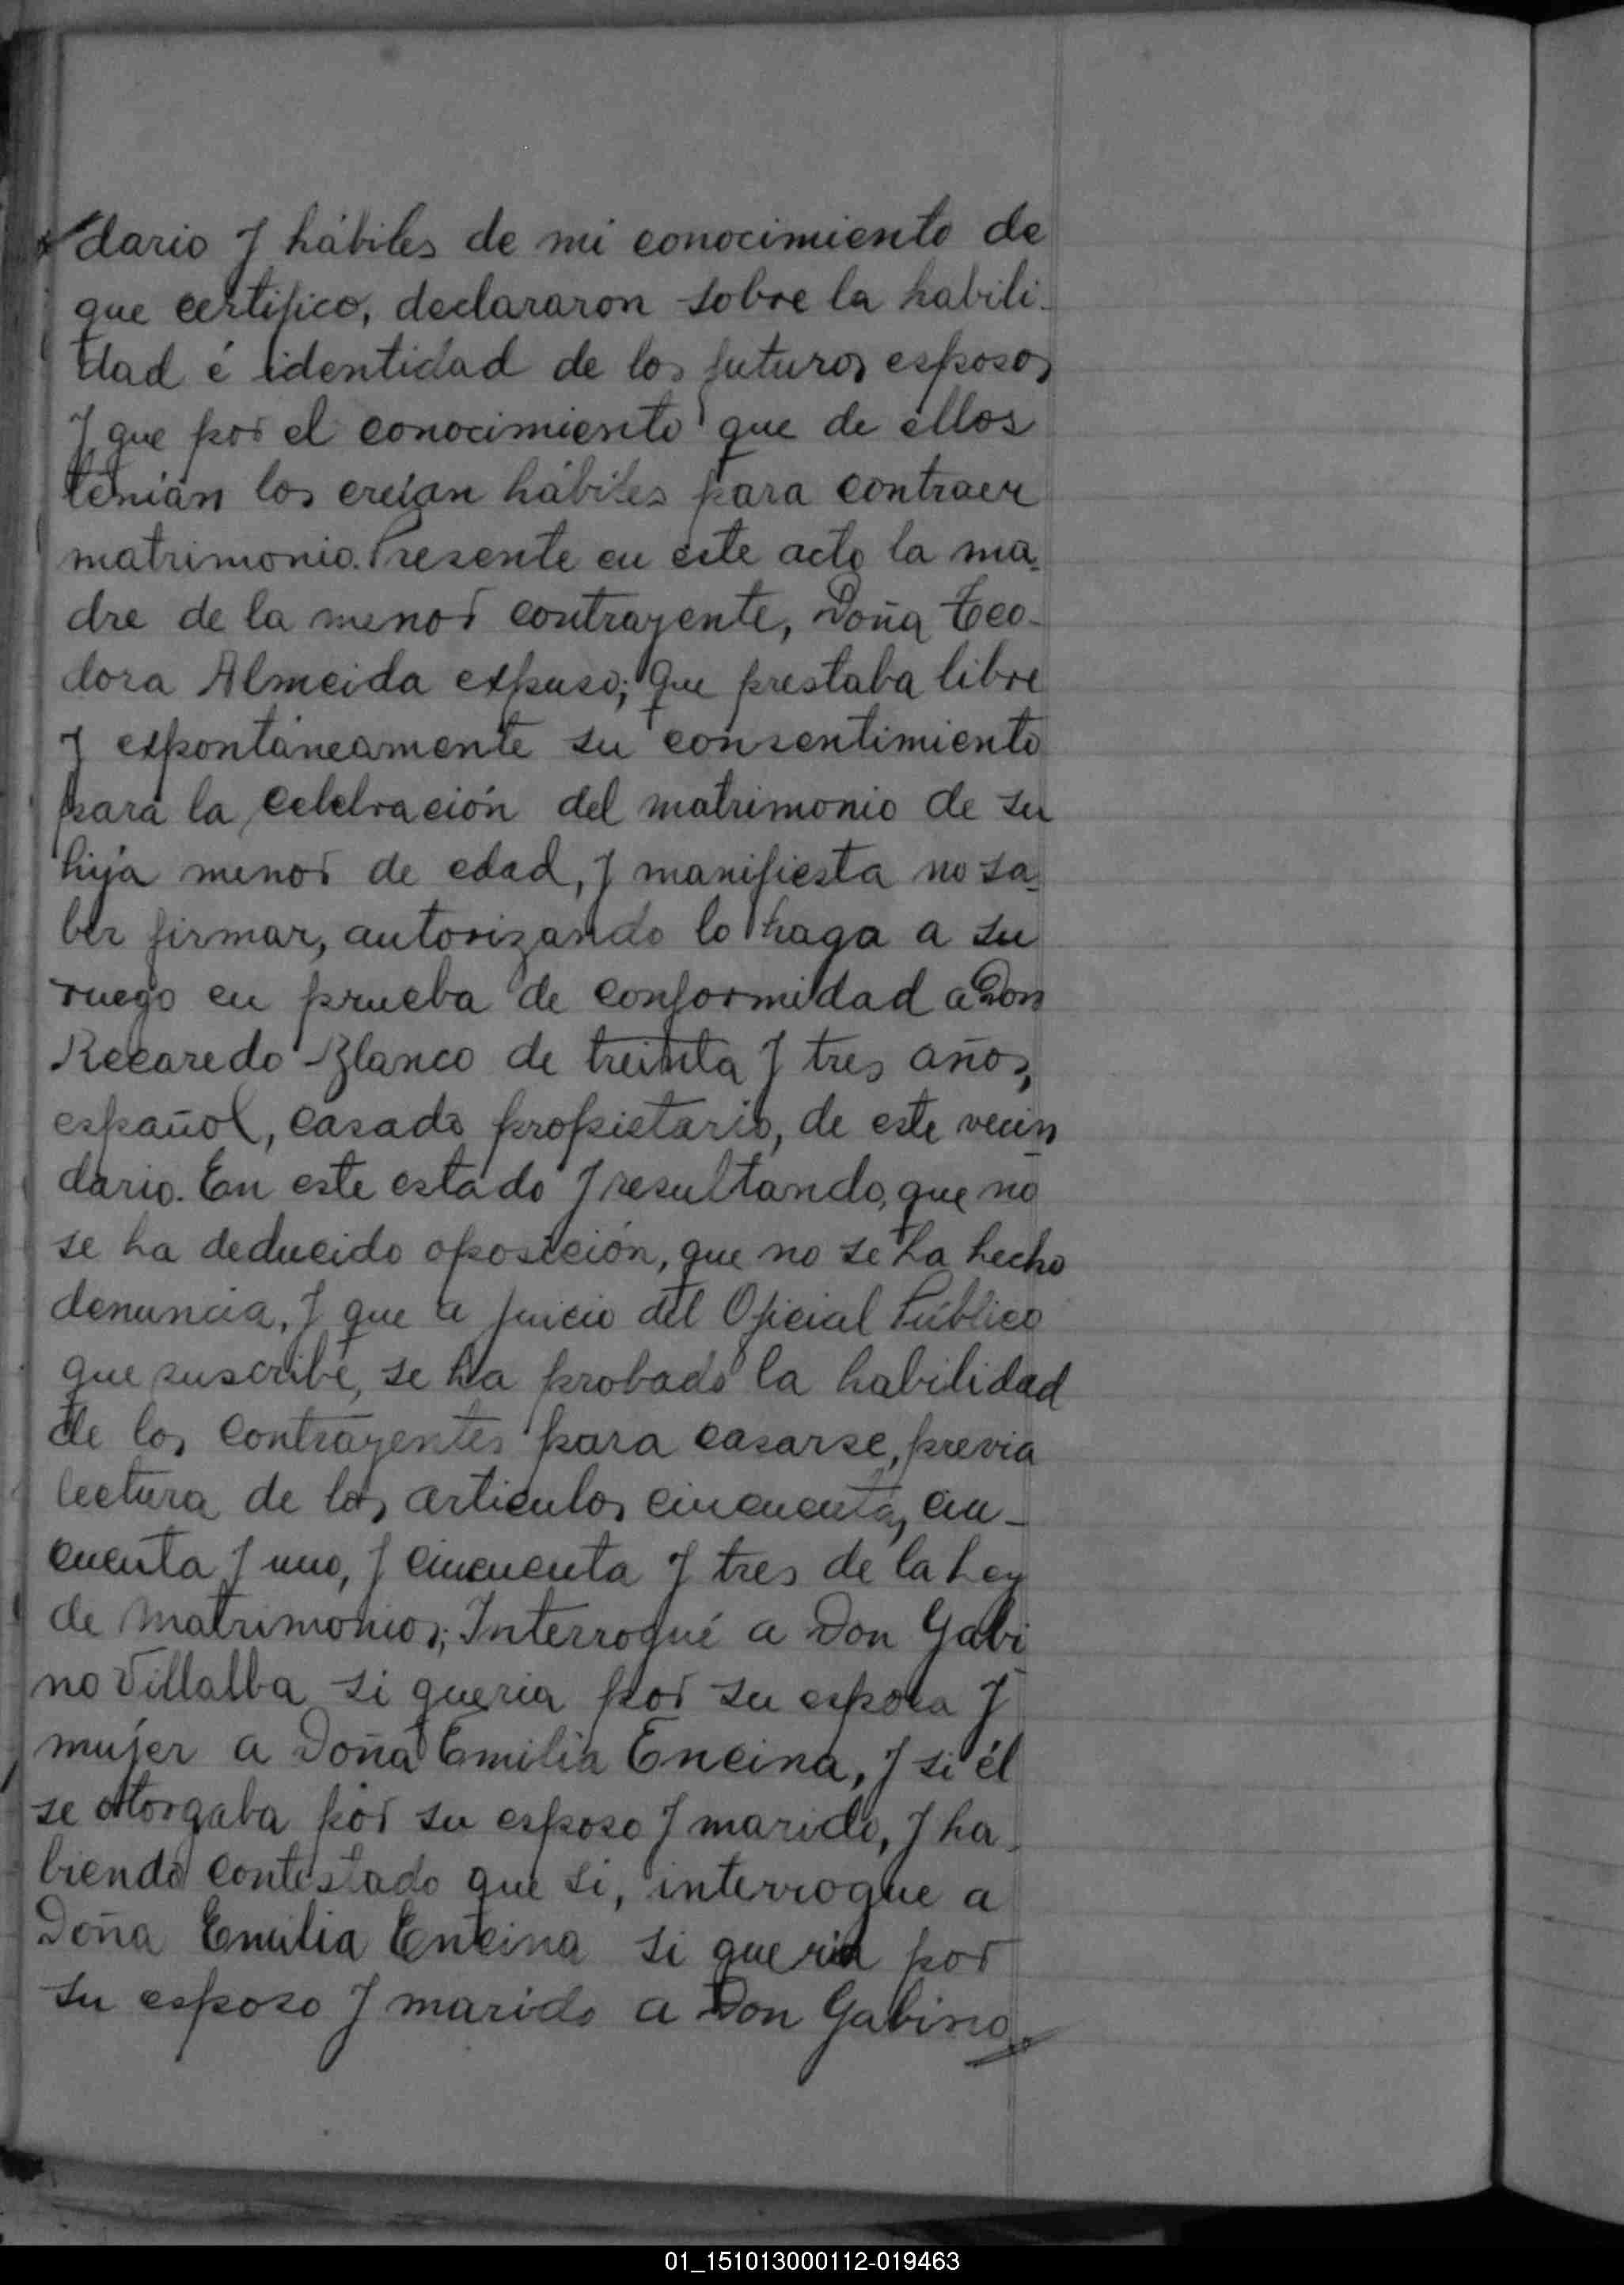 dario y hábiles de mi conocimiento de
que certifico, declararon sobre la habili-
dad é identidad de los futuros esposos
y que por el conocimiento que de ellos
tenían los creían hábiles para contraer
matrimonio. Presente en este acto la ma-
dre de la menor contrayente, Doña Teo-
dora Almeida expuso; que prestaba libre
y expontáneamente su consentimiento
para la celebración del matrimonio de su
hija menor de edad, y manifiesta no sa-
ber firmar, autorizando lo haga a su
ruego en prueba de conformidad a Don
Recaredo Blanco de treinta y tres años,
español, casado propietario, de este vecin
dario. En este estado y resultando, que no
se ha deducido oposición, que no se ha hecho
denuncia, y que a juicio del Oficial Público
que suscribe, se ha probado la habilidad
de los contrayentes para casarse, previa
lectura de los articulos cincuenta, cin-
cuenta y uno, y cincuenta y tres de la Ley
de Matrimonios; Interrogué a Don Gabi
no Villalba si queria por su esposa y
mujer a Doña Emilia Encina, y si él
se otorgaba por su esposo y marido, y ha-
biendo contestado que si, interrogue a
Doña Emilia Encina si queria por
su esposo y marido a Don Gabino
01_151013000112-019463